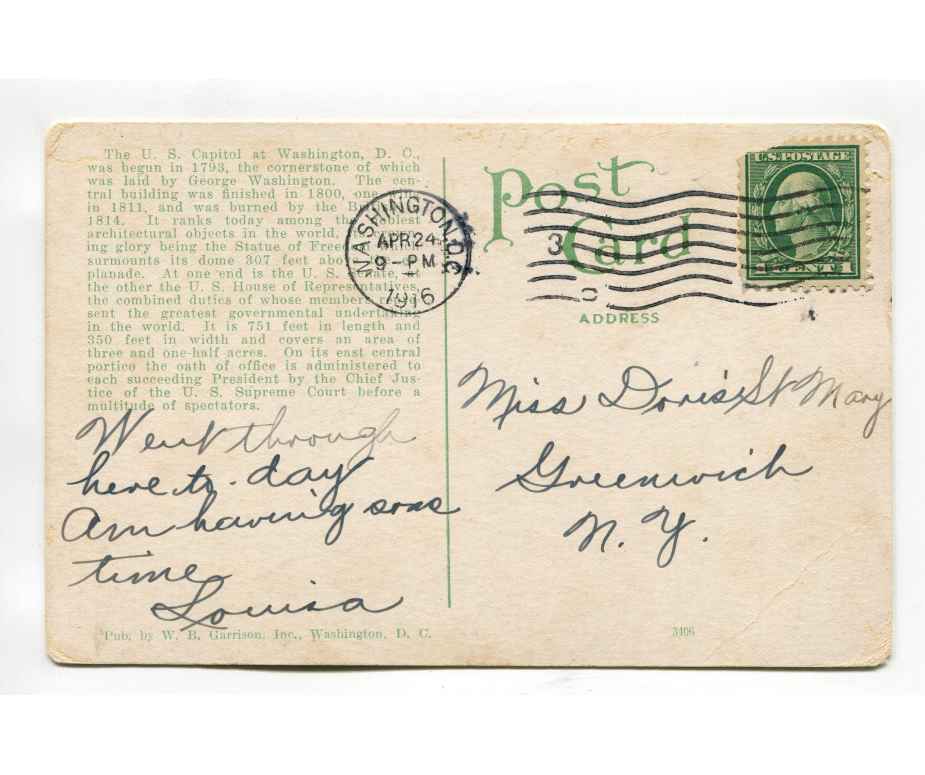 The U. S. Capitol at Washington, D. C.,
was begun in 1793, the cornerstone of which
was laid by George Washington. The cen-
tral building was finished in 1800, one
in 1811, and was burned by the
1814. It ranks today among the
architectural objects in the world, its
ing glory being the Statue of Freedom which
surmounts its dome 307 feet above
planade. At one end is the U. S. Senate, at
the other the U. S. House of Representatives,
the combined duties of whose members
sent the greatest governmental undertaking
in the world. It is 751 feet in length and
350 feet in width and covers an area of
three and one-half acres. On its east central
portico the oath of office is administered to
each succeeding President by the Chief Jus-
tice of the U. S. Supreme Court before a
multitude of spectators.
Went through
here to-day
Am having some
time
Louisa
Pub. by W. B. Garrison, Inc., Washington, D. C.
WASHINGTON, D.C.
APR 24
9-PM
1916
Post
Card
3
U.S. POSTAGE
1 CENT 1
ADDRESS
Miss Doris St Mary
Greenwich
N. Y.
3406